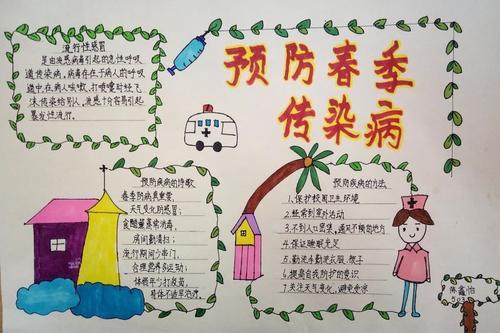 预防春季
传染病
流行性感冒
是由流感病毒引起的急性呼吸
道传染病,病毒存在于病人的呼吸
道中,在病人咳嗽,打喷嚏时经飞
沫传染给别人。流感十分容易引起
暴发性流行。
预防疾病的诗歌
春季防病真重要,
天气变化防感冒;
食醋薰蒸能消毒,
房间勤清扫;
流行期间少串门,
合理营养多运动;
体弱年少打疫苗,
身体不适早治疗。
预防疾病的方法
1.保护校园卫生环境
2.经常到室外活动
3.不到人口密集,通风不畅的地方
4.保证睡眠充足
5.勤洗手勤洗衣服,被子
6.提高自我防护的意识
7.关注天气变化,避免受凉
鑫怡
503